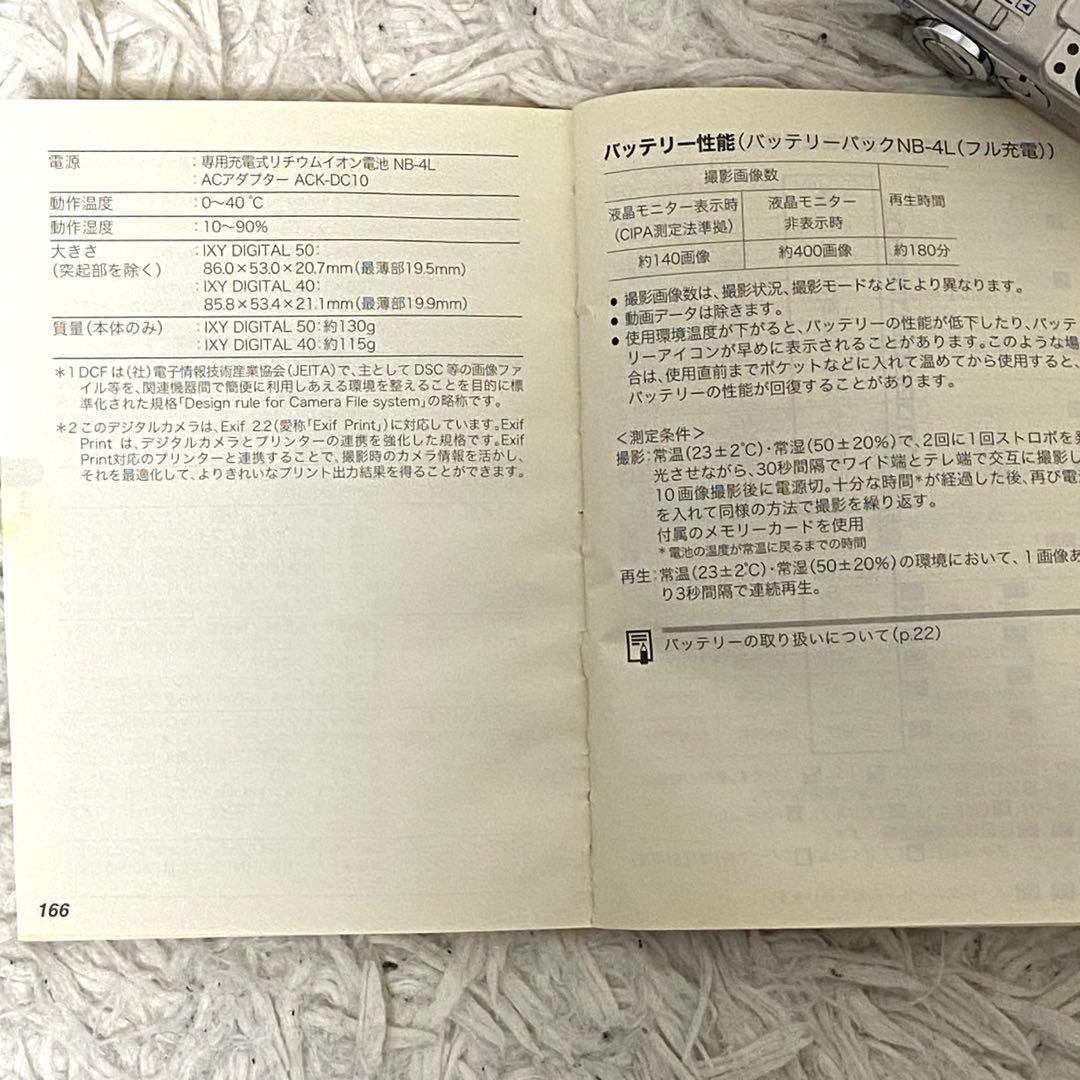 電源 :専用充電式リチウムイオン電池 NB-4L
:ACアダプター ACK-DC10
動作温度 :0〜40℃
動作湿度 :10〜90%
大きさ :IXY DIGITAL 50:
(突起部を除く) 86.0×53.0×20.7mm(最薄部19.5mm)
:IXY DIGITAL 40:
85.8×53.4×21.1mm(最薄部19.9mm)
質量(本体のみ) :IXY DIGITAL 50:約130g
:IXY DIGITAL 40:約115g
*1 DCFは(社)電子情報技術産業協会(JEITA)で、主としてDSC等の画像ファ
イル等を、関連機器間で簡便に利用しあえる環境を整えることを目的に標
準化された規格「Design rule for Camera File system」の略称です。
*2 このデジタルカメラは、Exif 2.2(愛称「Exif Print」)に対応しています。Exif
Print は、デジタルカメラとプリンターの連携を強化した規格です。Exif
Print対応のプリンターと連携することで、撮影時のカメラ情報を活かし、
それを最適化して、よりきれいなプリント出力結果を得ることができます。
166
バッテリー性能(バッテリーパックNB-4L(フル充電))
撮影画像数
再生時間
液晶モニター表示時
(CIPA測定法準拠)
液晶モニター
非表示時
約140画像 約400画像 約180分
● 撮影画像数は、撮影状況、撮影モードなどにより異なります。
● 動画データは除きます。
● 使用環境温度が下がると、バッテリーの性能が低下したり、バッテ
リーアイコンが早めに表示されることがあります。このような場
合は、使用直前までポケットなどに入れて温めてから使用すると、
バッテリーの性能が回復することがあります。
<測定条件>
撮影:常温(23±2℃)・常湿(50±20%)で、2回に1回ストロボを発
光させながら、30秒間隔でワイド端とテレ端で交互に撮影し
10画像撮影後に電源切。十分な時間*が経過した後、再び電源
を入れて同様の方法で撮影を繰り返す。
付属のメモリーカードを使用
*電池の温度が常温に戻るまでの時間
再生:常温(23±2℃)・常湿(50±20%)の環境において、1画像あ
り3秒間隔で連続再生。
バッテリーの取り扱いについて(p.22)